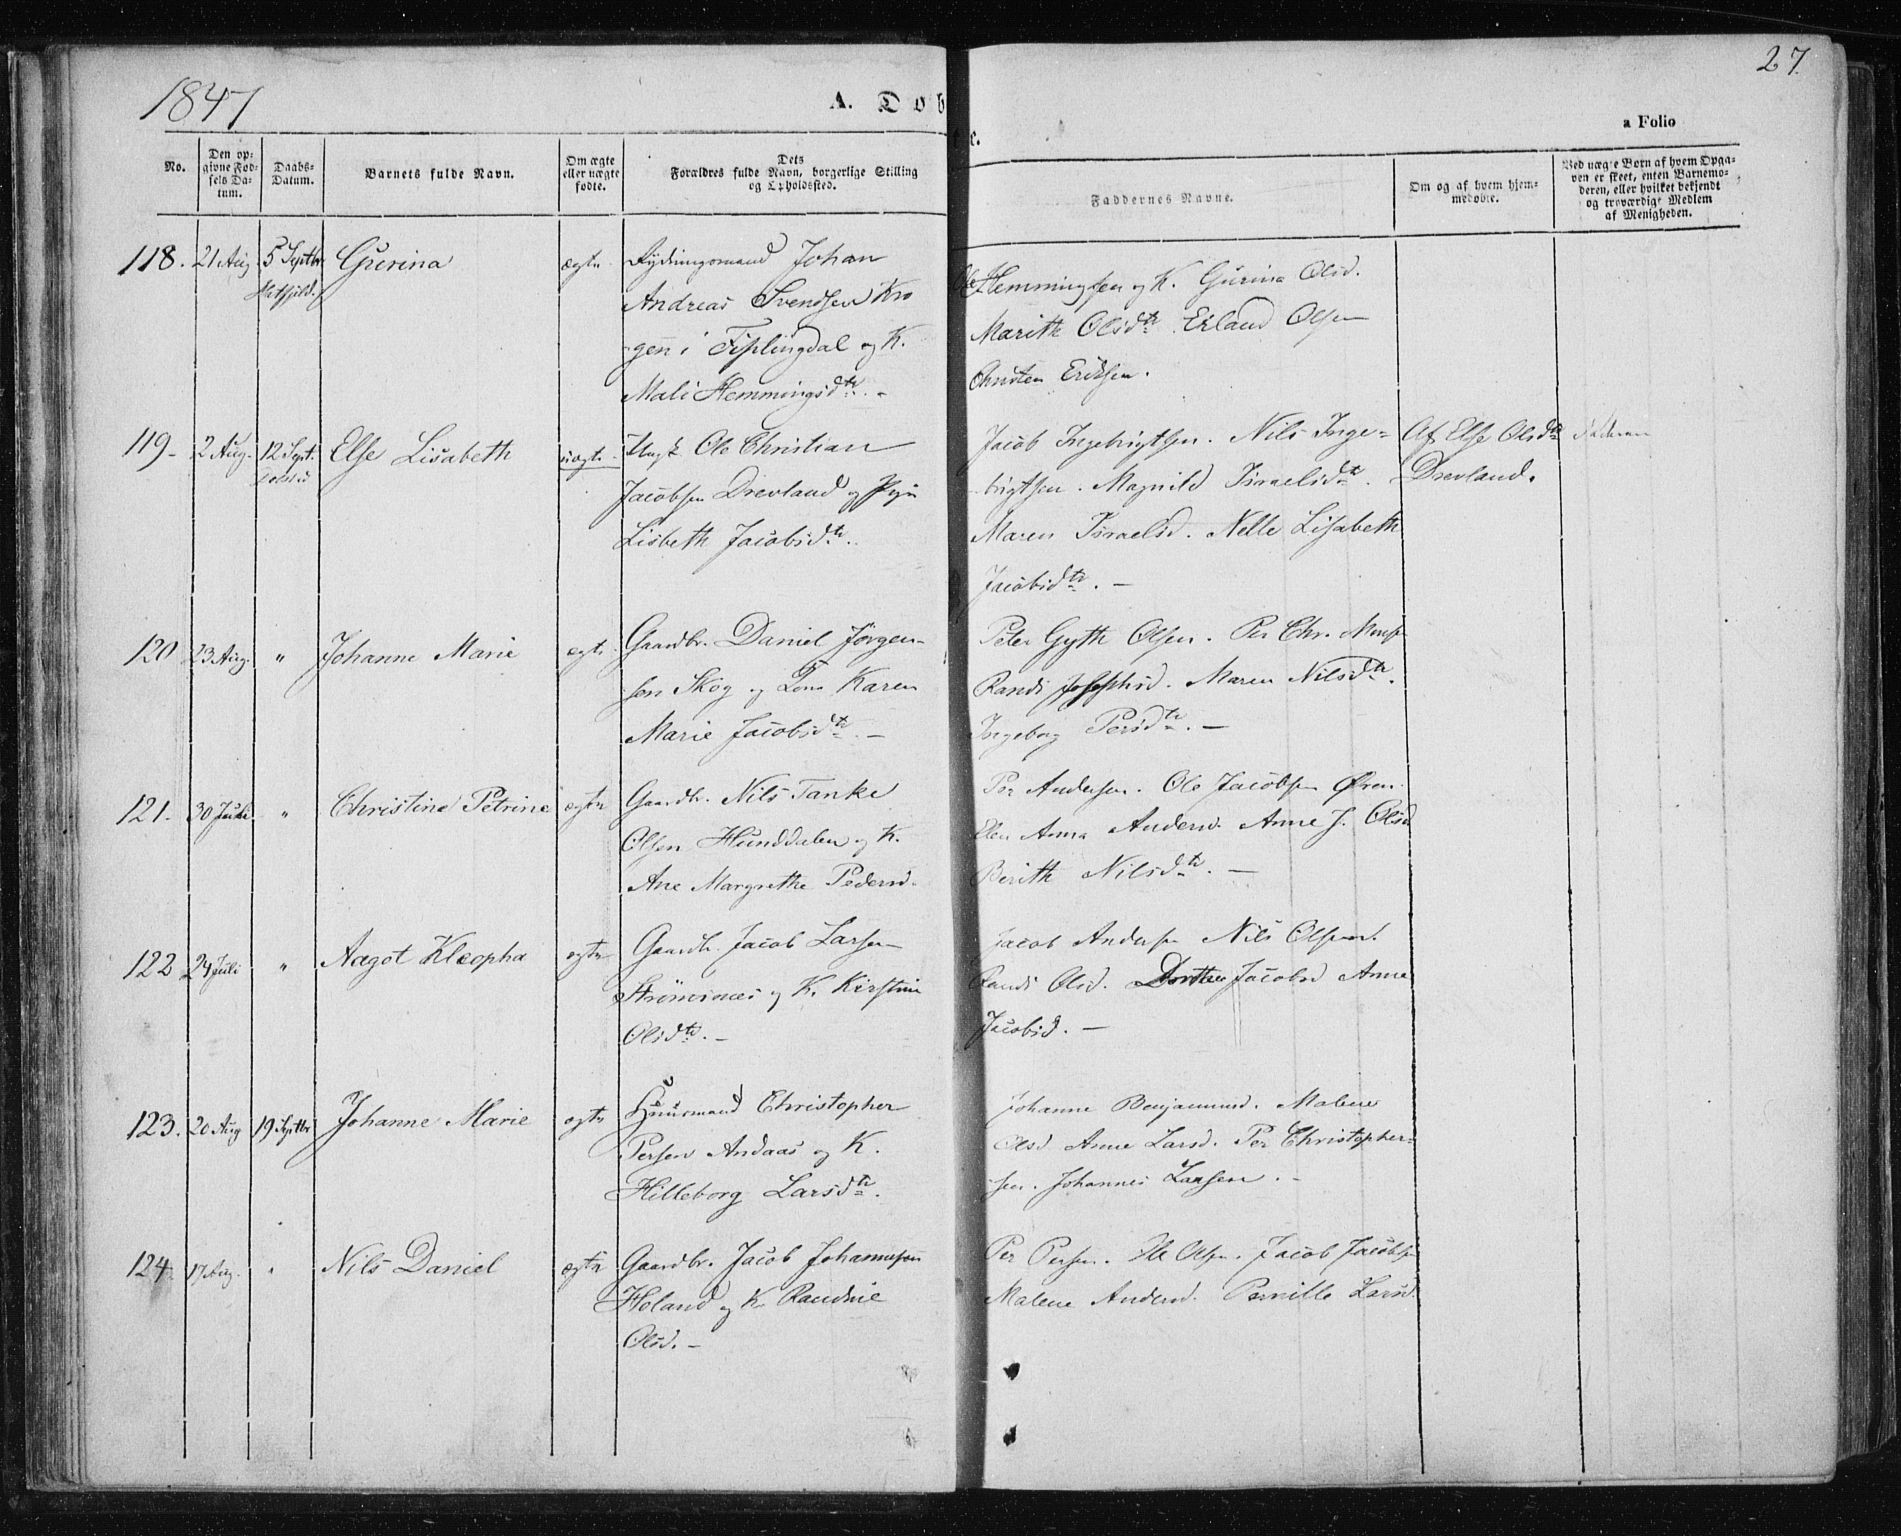 1847
27.
A. Døbte.
a Folio
No.
Den op-
givne Fød-
sels Da-
tum.
Daabs-
Datum.
Barnets fulde Navn.
Om ægte
eller uægte
fødte.
Dets
Forældres fulde Navn, borgerlige Stilling
og Opholdssted.
Faddernes Navne.
Om og af hvem hjem-
medøbte.
Ved uægte Børn af hvem Opga-
ven er skeet, enten Barnemo-
deren, eller hvilket bekjendt
og troværdigt Medlem
af Menigheden.
118. 21 Aug 5 Septbr Gurina ægte Rydningsmand Johan
Hatfjeld.
Andreas Svendsen Kro
gen i Fiplingdal og K.
Mali Hemmingsdtr. -
Ole Hemmingsen og K. Gurina Olsd.
Marith Olsdtr Erland Olsen
Christen Eriksen.
119- 2 Aug. 12 Sept. Else Lisabeth uægte Ungk. Ole Christian
Dolstad
Jacobsen Drevland og Pige
Lisbeth Jacobsdtr.
Jacob Ingebrigtsen. Nils Inge-
brigtsen. Magnild Israelsdtr.
Maren Israelsd. Nelle Lisabeth
Jacobsdtr. -
Af Else Olsdtr
Drevland.
Faderen
120 23 Aug. " Johanne Marie ægte Gaardbr. Daniel Jörgen-
sen Skog og Kone Karen
Marie Jacobsdtr. -
Peter Gyth Olsen. Per Chr. Mons.
Randi Josephsd. Maren Nilsdtr.
Ingeborg Persdtr. -
121. 30 Juli " Christine Petrine ægte Gaardbr. Nils Tanke
Olsen Hunddalen og K.
Ane Margrethe Pedersd.
Per Andersen. Ole Jacobsen Øren.
Elen Anna Andersd. Anne J. Olsd
Berith Nilsdtr. -
122 24 Juli " Aagot Kleopha ægte Gaardb. Jacob Larsen
Strömsnes og K. Kirstine
Olsdtr. -
Jacob Andersen Nils Olsen.
Randi Olsd. Dorthea Jacobsd Anne
Jacobsd. -
123. 20 Aug 19 Septbr Johanne Marie ægte Huusmand Christopher
Persen Andaas og K.
Hilleborg Larsdtr.
Johanne Benjaminsd. Malene
Olsd Anne Larsd. Per Christopher-
sen. Johannes Larsen. -
124. 17 Aug. " Nils Daniel ægte Gaardbr. Jacob Johannesen
Holand og K. Randine
Olsd. -
Per Persen. Ole Olsen. Jacob Jacobsen
Malene Andersd. Pernille Larsd.